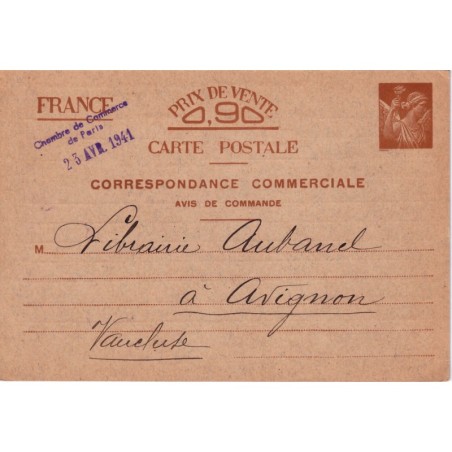 FRANCE
PRIX DE VENTE
0,90
Chambre de Commerce
de Paris
23 AVR. 1941
CARTE POSTALE
CORRESPONDANCE COMMERCIALE
AVIS DE COMMANDE
M Librairie Aubanel
à Avignon
Vaucluse